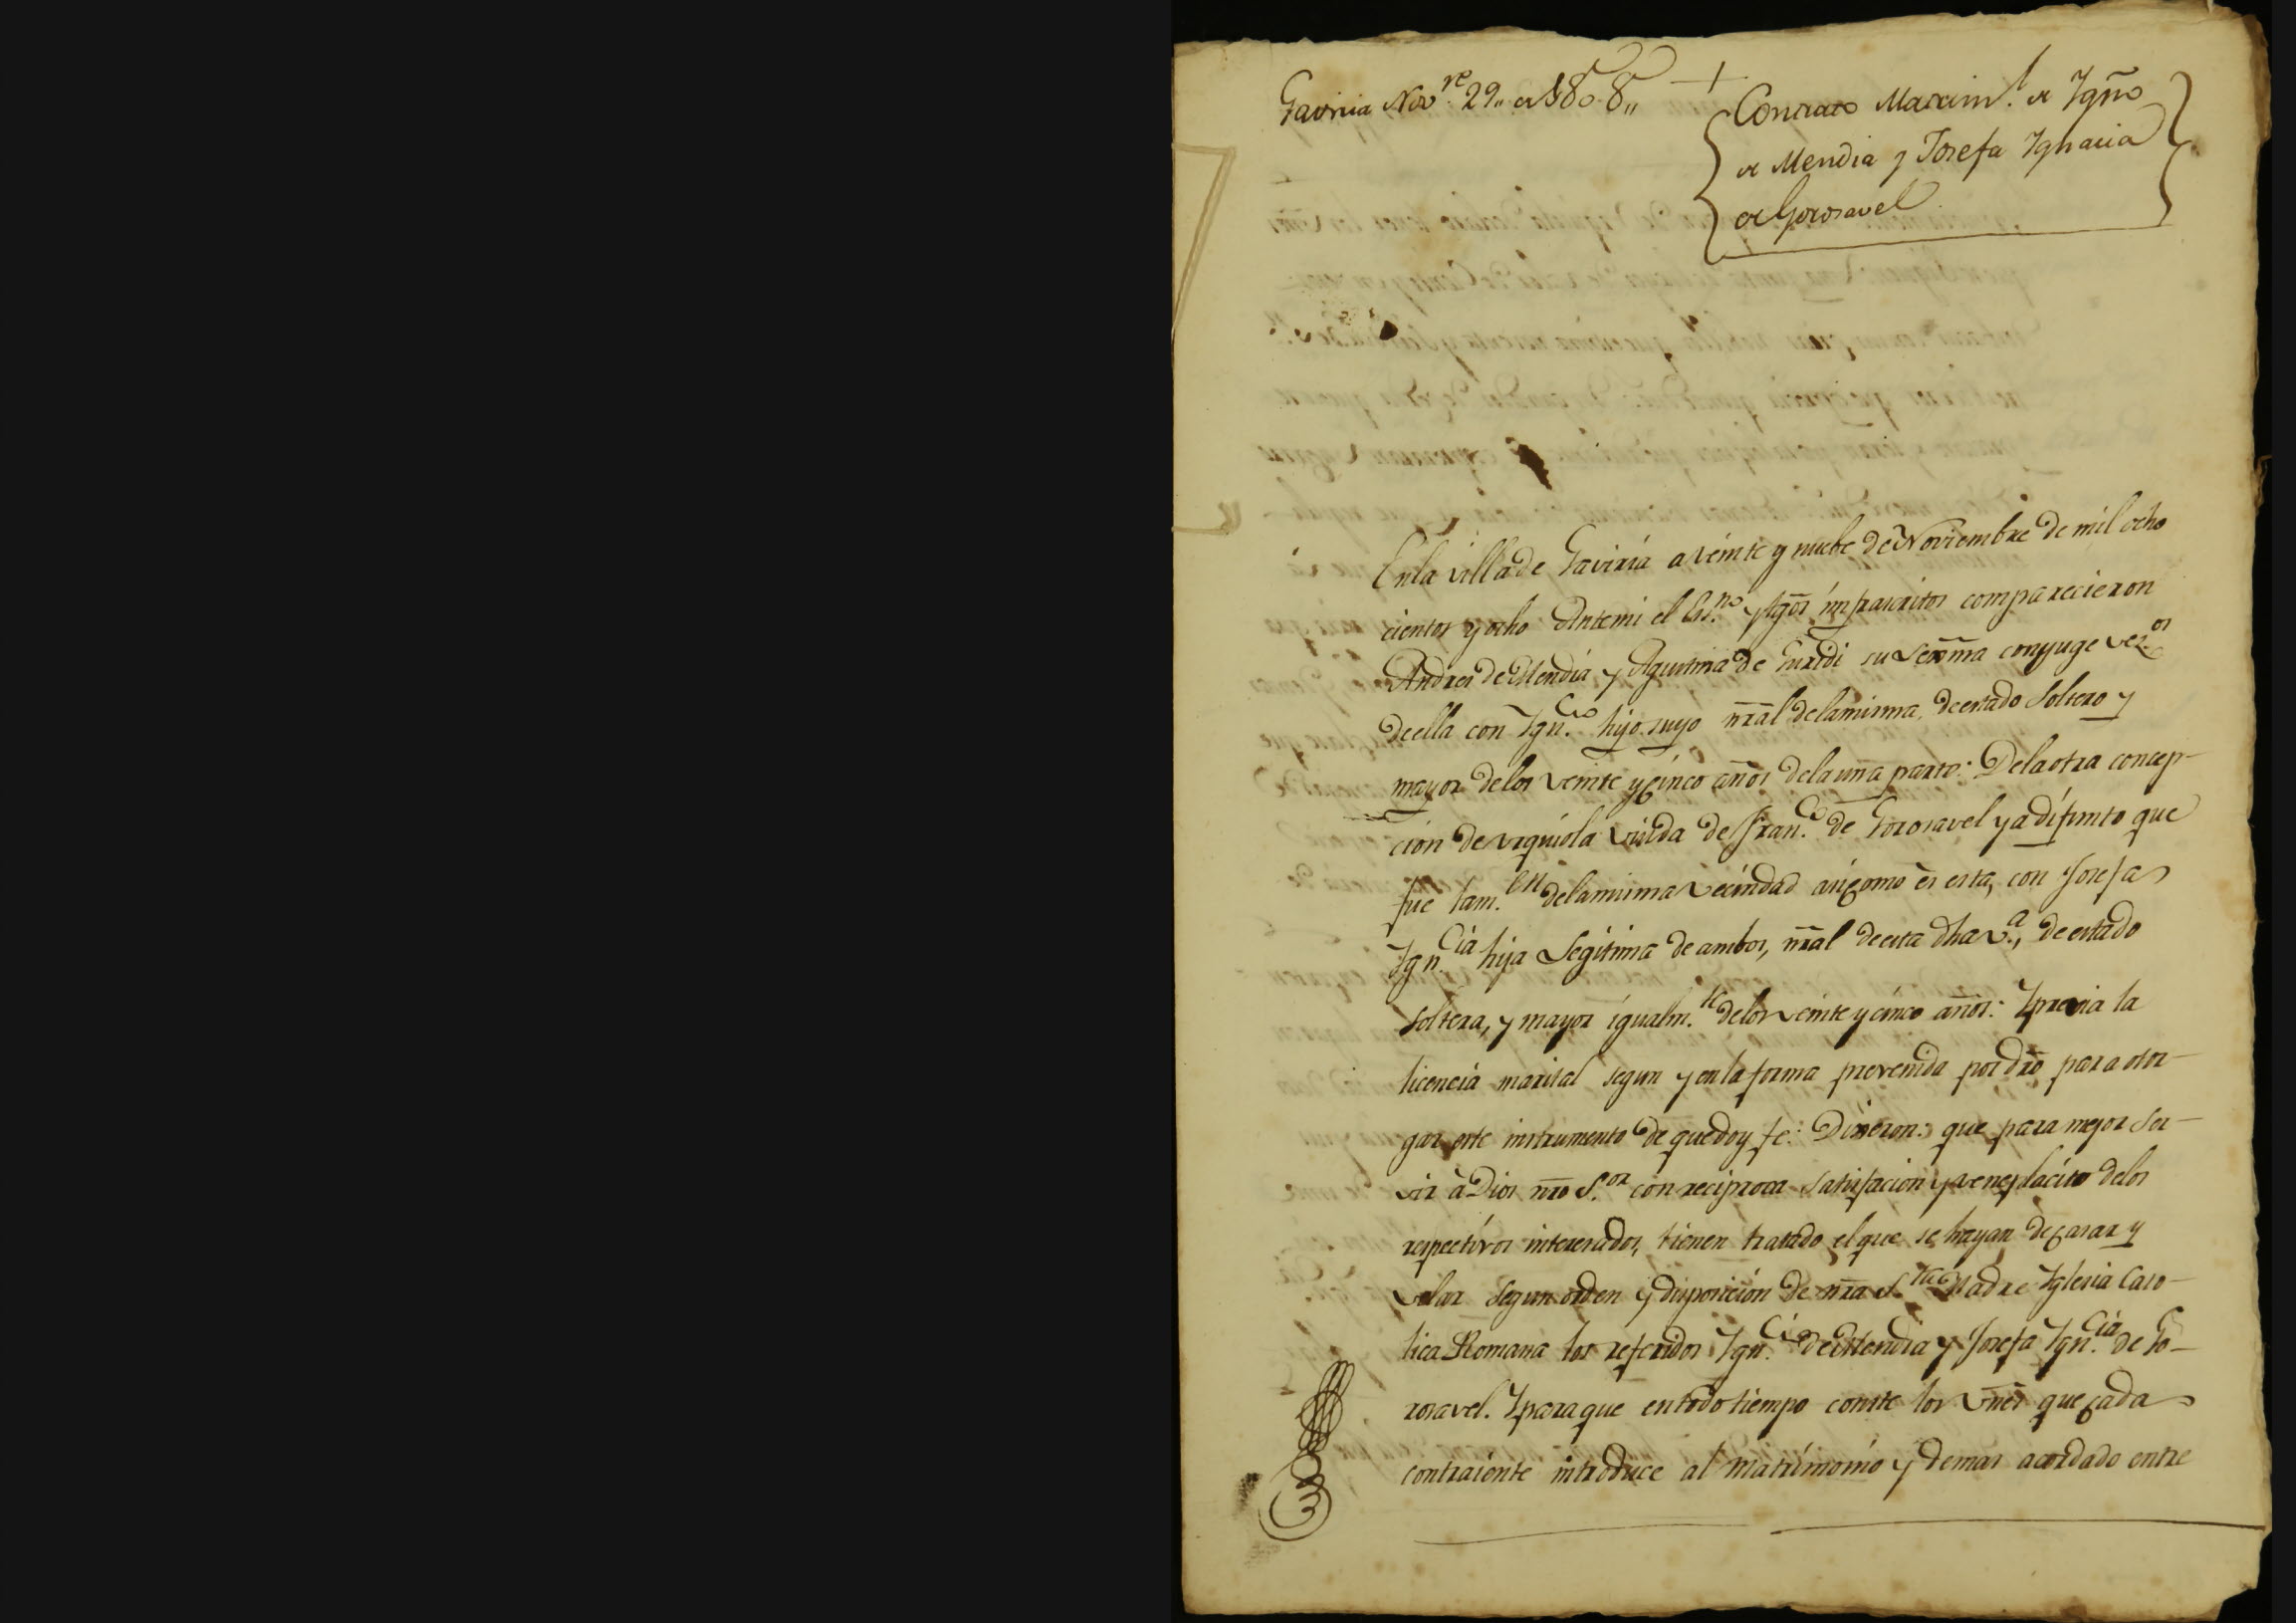 Gaviria Nov.re 29,, de 1808,,
+
Contrato Matrim.l de Ygño
de Mendia y Josefa Ygnacia
de Gorosavel
En la villa de Gaviria a veinte y nuebe de Noviembre de mil ocho
cientos y ocho Antemi el Es.no y tgõs infrascritos comparecieron
Andres de Mendia y Agustina de Guridi su lexma conyuge vez.os
de ella con Ygn.cio hijo suyo nr̃al de la misma, de estado Soltero y
mayor de los veinte y cinco años de la una parte: De la otra concep-
cion de Urquiola viuda de Fran.co de Gorosavel ya difunto que
fue tam.en de la misma vecindad asi como es esta, con Josefa
Ygn.cia hija Legitima de ambos, nr̃al de esta dha v.a, de estado
soltera, y mayor igualm.te de los veinte y cinco años: Y previa la
licencia marital segun y en la forma prevenida por dr̃o para otor-
gar este instrumento de que doy fe: Dixeron: que para mejor ser-
vir à Dios nr̃o S.or con reciproca satisfacion y veneplacito de los
respectivos interesados, tienen tratado el que se hayan de casar y
velar segun orden y disposicion de nr̃a S.ta Madre Yglesia Cato-
lica Romana los referidos Ygn.cio de Mendia y Josefa Ygn.cia de Go-
rosavel. Y para que en todo tiempo conste los vñes que cada
contraiente introduce al matrimonio y demas acordado entre